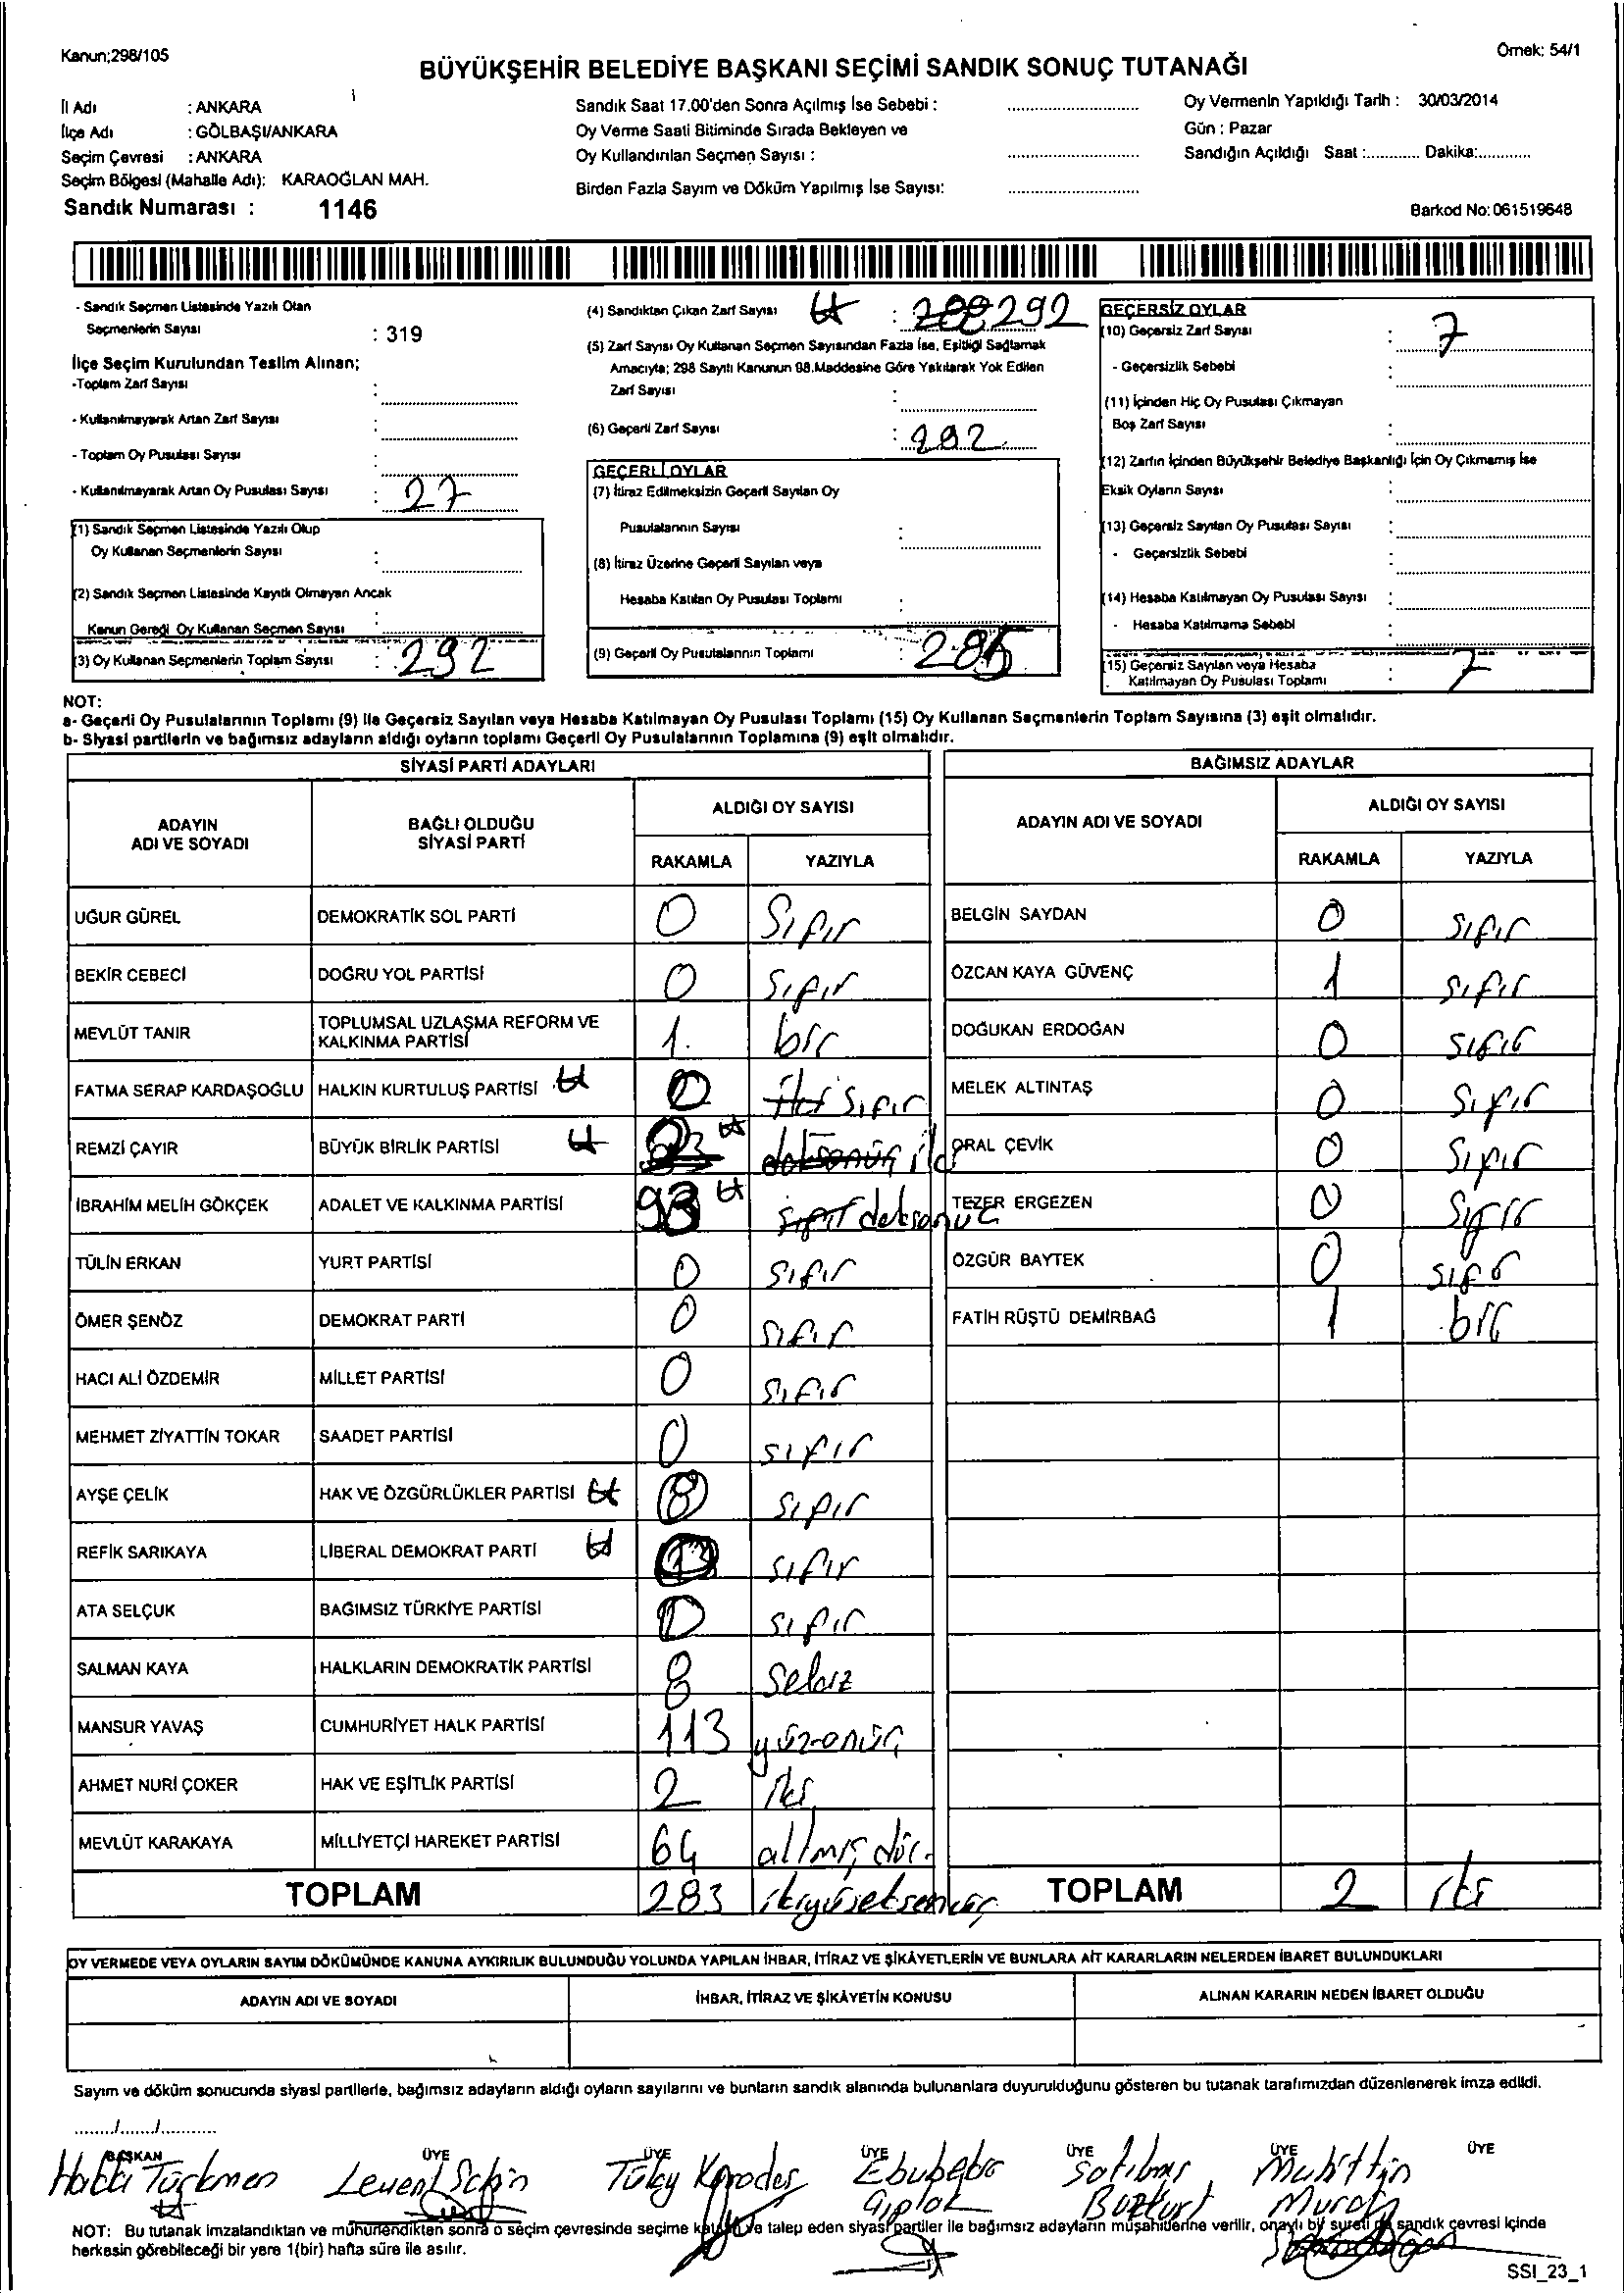 Kanun;298/105
Örnek: 54/1
BÜYÜKŞEHİR BELEDİYE BAŞKANI SEÇİMİ SANDIK SONUÇ TUTANAĞI
İl Adı : ANKARA
İlçe Adı : GÖLBAŞI/ANKARA
Seçim Çevresi : ANKARA
Seçim Bölgesi (Mahalle Adı): KARAOĞLAN MAH.
Sandık Numarası : 1146
Sandık Saat 17.00'den Sonra Açılmış İse Sebebi :
Oy Verme Saati Bitiminde Sırada Bekleyen ve
Oy Kullandırılan Seçmen Sayısı :
Birden Fazla Sayım ve Döküm Yapılmış İse Sayısı:
Oy Vermenin Yapıldığı Tarih : 30/03/2014
Gün : Pazar
Sandığın Açıldığı Saat :............ Dakika:............
Barkod No: 061519648
- Sandık Seçmen Listesinde Yazılı Olan
Seçmenlerin Sayısı : 319
İlçe Seçim Kurulundan Teslim Alınan;
-Toplam Zarf Sayısı :
- Kullanılmayarak Artan Zarf Sayısı :
- Toplam Oy Pusulası Sayısı :
- Kullanılmayarak Artan Oy Pusulası Sayısı : 27
(1) Sandık Seçmen Listesinde Yazılı Olup
Oy Kullanan Seçmenlerin Sayısı :
(2) Sandık Seçmen Listesinde Kayıtlı Olmayan Ancak
Kanun Gereği Oy Kullanan Seçmen Sayısı :
(3) Oy Kullanan Seçmenlerin Toplam Sayısı : 292
(4) Sandıktan Çıkan Zarf Sayısı : 292
(5) Zarf Sayısı Oy Kullanan Seçmen Sayısından Fazla İse, Eşitliği Sağlamak
Amacıyla; 298 Sayılı Kanunun 98.Maddesine Göre Yakılarak Yok Edilen
Zarf Sayısı :
(6) Geçerli Zarf Sayısı : 292
GEÇERLİ OYLAR
(7) İtiraz Edilmeksizin Geçerli Sayılan Oy
Pusulalarının Sayısı :
(8) İtiraz Üzerine Geçerli Sayılan veya
Hesaba Katılan Oy Pusulası Toplamı :
(9) Geçerli Oy Pusulalarının Toplamı : 285
GEÇERSİZ OYLAR
(10) Geçersiz Zarf Sayısı : 7
- Geçersizlik Sebebi :
(11) İçinden Hiç Oy Pusulası Çıkmayan
Boş Zarf Sayısı :
(12) Zarfın İçinden Büyükşehir Belediye Başkanlığı İçin Oy Çıkmamış İse
Eksik Oyların Sayısı :
(13) Geçersiz Sayılan Oy Pusulası Sayısı :
- Geçersizlik Sebebi :
(14) Hesaba Katılmayan Oy Pusulası Sayısı :
- Hesaba Katılmama Sebebi :
(15) Geçersiz Sayılan veya Hesaba
Katılmayan Oy Pusulası Toplamı : 7
NOT:
a- Geçerli Oy Pusulalarının Toplamı (9) ile Geçersiz Sayılan veya Hesaba Katılmayan Oy Pusulası Toplamı (15) Oy Kullanan Seçmenlerin Toplam Sayısına (3) eşit olmalıdır.
b- Siyasi partilerin ve bağımsız adayların aldığı oyların toplamı Geçerli Oy Pusulalarının Toplamına (9) eşit olmalıdır.
SİYASİ PARTİ ADAYLARI
ADAYIN ADI VE SOYADI
BAĞLI OLDUĞU SİYASİ PARTİ
ALDIĞI OY SAYISI
RAKAMLA YAZIYLA
UĞUR GÜREL DEMOKRATİK SOL PARTİ 0 Sıfır
BEKİR CEBECİ DOĞRU YOL PARTİSİ 0 Sıfır
MEVLÜT TANIR TOPLUMSAL UZLAŞMA REFORM VE KALKINMA PARTİSİ 1 bir
FATMA SERAP KARDAŞOĞLU HALKIN KURTULUŞ PARTİSİ 0 sıfır
REMZİ ÇAYIR BÜYÜK BİRLİK PARTİSİ
İBRAHİM MELİH GÖKÇEK ADALET VE KALKINMA PARTİSİ 93 doksanüç
TÜLİN ERKAN YURT PARTİSİ 0 sıfır
ÖMER ŞENÖZ DEMOKRAT PARTİ 0 sıfır
HACI ALİ ÖZDEMİR MİLLET PARTİSİ 0 sıfır
MEHMET ZİYATTİN TOKAR SAADET PARTİSİ 0 sıfır
AYŞE ÇELİK HAK VE ÖZGÜRLÜKLER PARTİSİ sıfır
REFİK SARIKAYA LİBERAL DEMOKRAT PARTİ sıfır
ATA SELÇUK BAĞIMSIZ TÜRKİYE PARTİSİ 0 sıfır
SALMAN KAYA HALKLARIN DEMOKRATİK PARTİSİ 8 sekiz
MANSUR YAVAŞ CUMHURİYET HALK PARTİSİ 113 yüzonüç
AHMET NURİ ÇOKER HAK VE EŞİTLİK PARTİSİ 2 iki
MEVLÜT KARAKAYA MİLLİYETÇİ HAREKET PARTİSİ 64 altmış dör
TOPLAM 283 ikiyüzseksenüç
BAĞIMSIZ ADAYLAR
ADAYIN ADI VE SOYADI
ALDIĞI OY SAYISI
RAKAMLA YAZIYLA
BELGİN SAYDAN 0 sıfır
ÖZCAN KAYA GÜVENÇ 1 sıfır
DOĞUKAN ERDOĞAN 0 sıfır
MELEK ALTINTAŞ 0 sıfır
ORAL ÇEVİK 0 sıfır
TEZER ERGEZEN 0 sıfır
ÖZGÜR BAYTEK 0 sıfır
FATİH RÜŞTÜ DEMİRBAĞ 1 bir
TOPLAM 2 iki
OY VERMEDE VEYA OYLARIN SAYIM DÖKÜMÜNDE KANUNA AYKIRILIK BULUNDUĞU YOLUNDA YAPILAN İHBAR, İTİRAZ VE ŞİKÂYETLERİN VE BUNLARA AİT KARARLARIN NELERDEN İBARET BULUNDUKLARI
ADAYIN ADI VE SOYADI İHBAR, İTİRAZ VE ŞİKÂYETİN KONUSU ALINAN KARARIN NEDEN İBARET OLDUĞU
Sayım ve döküm sonucunda siyasi partilerle, bağımsız adayların aldığı oyların sayılarını ve bunların sandık alanında bulunanlara duyurulduğunu gösteren bu tutanak tarafımızdan düzenlenerek imza edildi.
......../......../............
BAŞKAN ÜYE ÜYE ÜYE ÜYE ÜYE ÜYE
Hakkı Türkmen Levent Şahin Tülay Ebubekir Satılmış Muhittin
Bozkurt Murat
NOT: Bu tutanak imzalandıktan ve mühürlendikten sonra o seçim çevresinde seçime katılan ve talep eden siyasi partiler ile bağımsız adayların müşahitlerine verilir, onaylı bir sureti de sandık çevresi içinde
herkesin görebileceği bir yere 1(bir) hafta süre ile asılır.
SSI_23_1